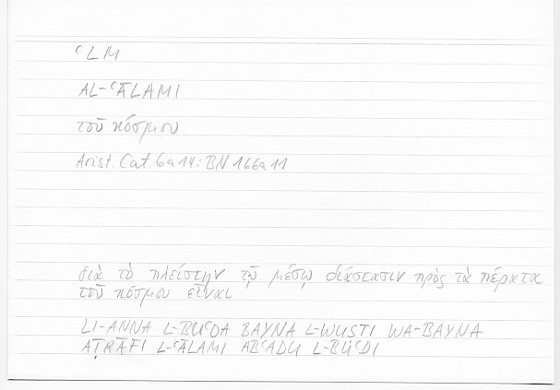 ʿLM
AL-ʿĀLAMI
τοῦ κόσμου
Arist. Cat. 6a14; BN 166a11
διὰ τὸ πλείστην τῷ μέσῳ διάστασιν πρὸς τὰ πέρατα
τοῦ κόσμου εἶναι
LI-ANNA L-BUʿDA BAYNA L-WUSṬI WA-BAYNA
AṬRĀFI L-ʿĀLAMI ABʿADU L-BUʿDI